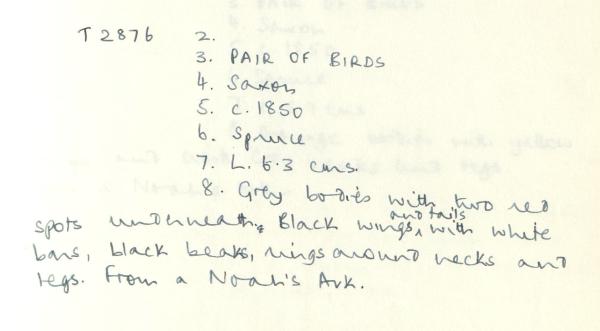 T 2876 2.
3. PAIR OF BIRDS
4. Saxon
5. c. 1850
6. Spruce
7. L. 6.3 cms.
8. Grey bodies with two red
spots underneath. Black wings and tails with white
bars, black beaks, rings around necks and
legs. From a Noah's Ark.